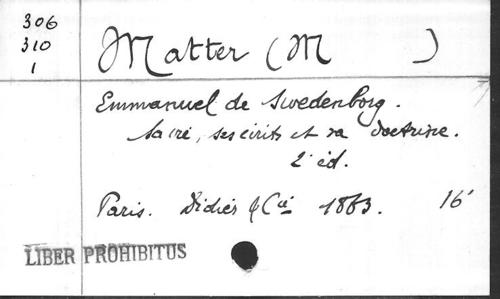 306
310
1
Matter (M )
Emmanuel de Swedenborg.
Sa vie, ses écrits et sa doctrine.
2e éd.
Paris. Didier & Cie 1863. 16°
LIBER PROHIBITUS